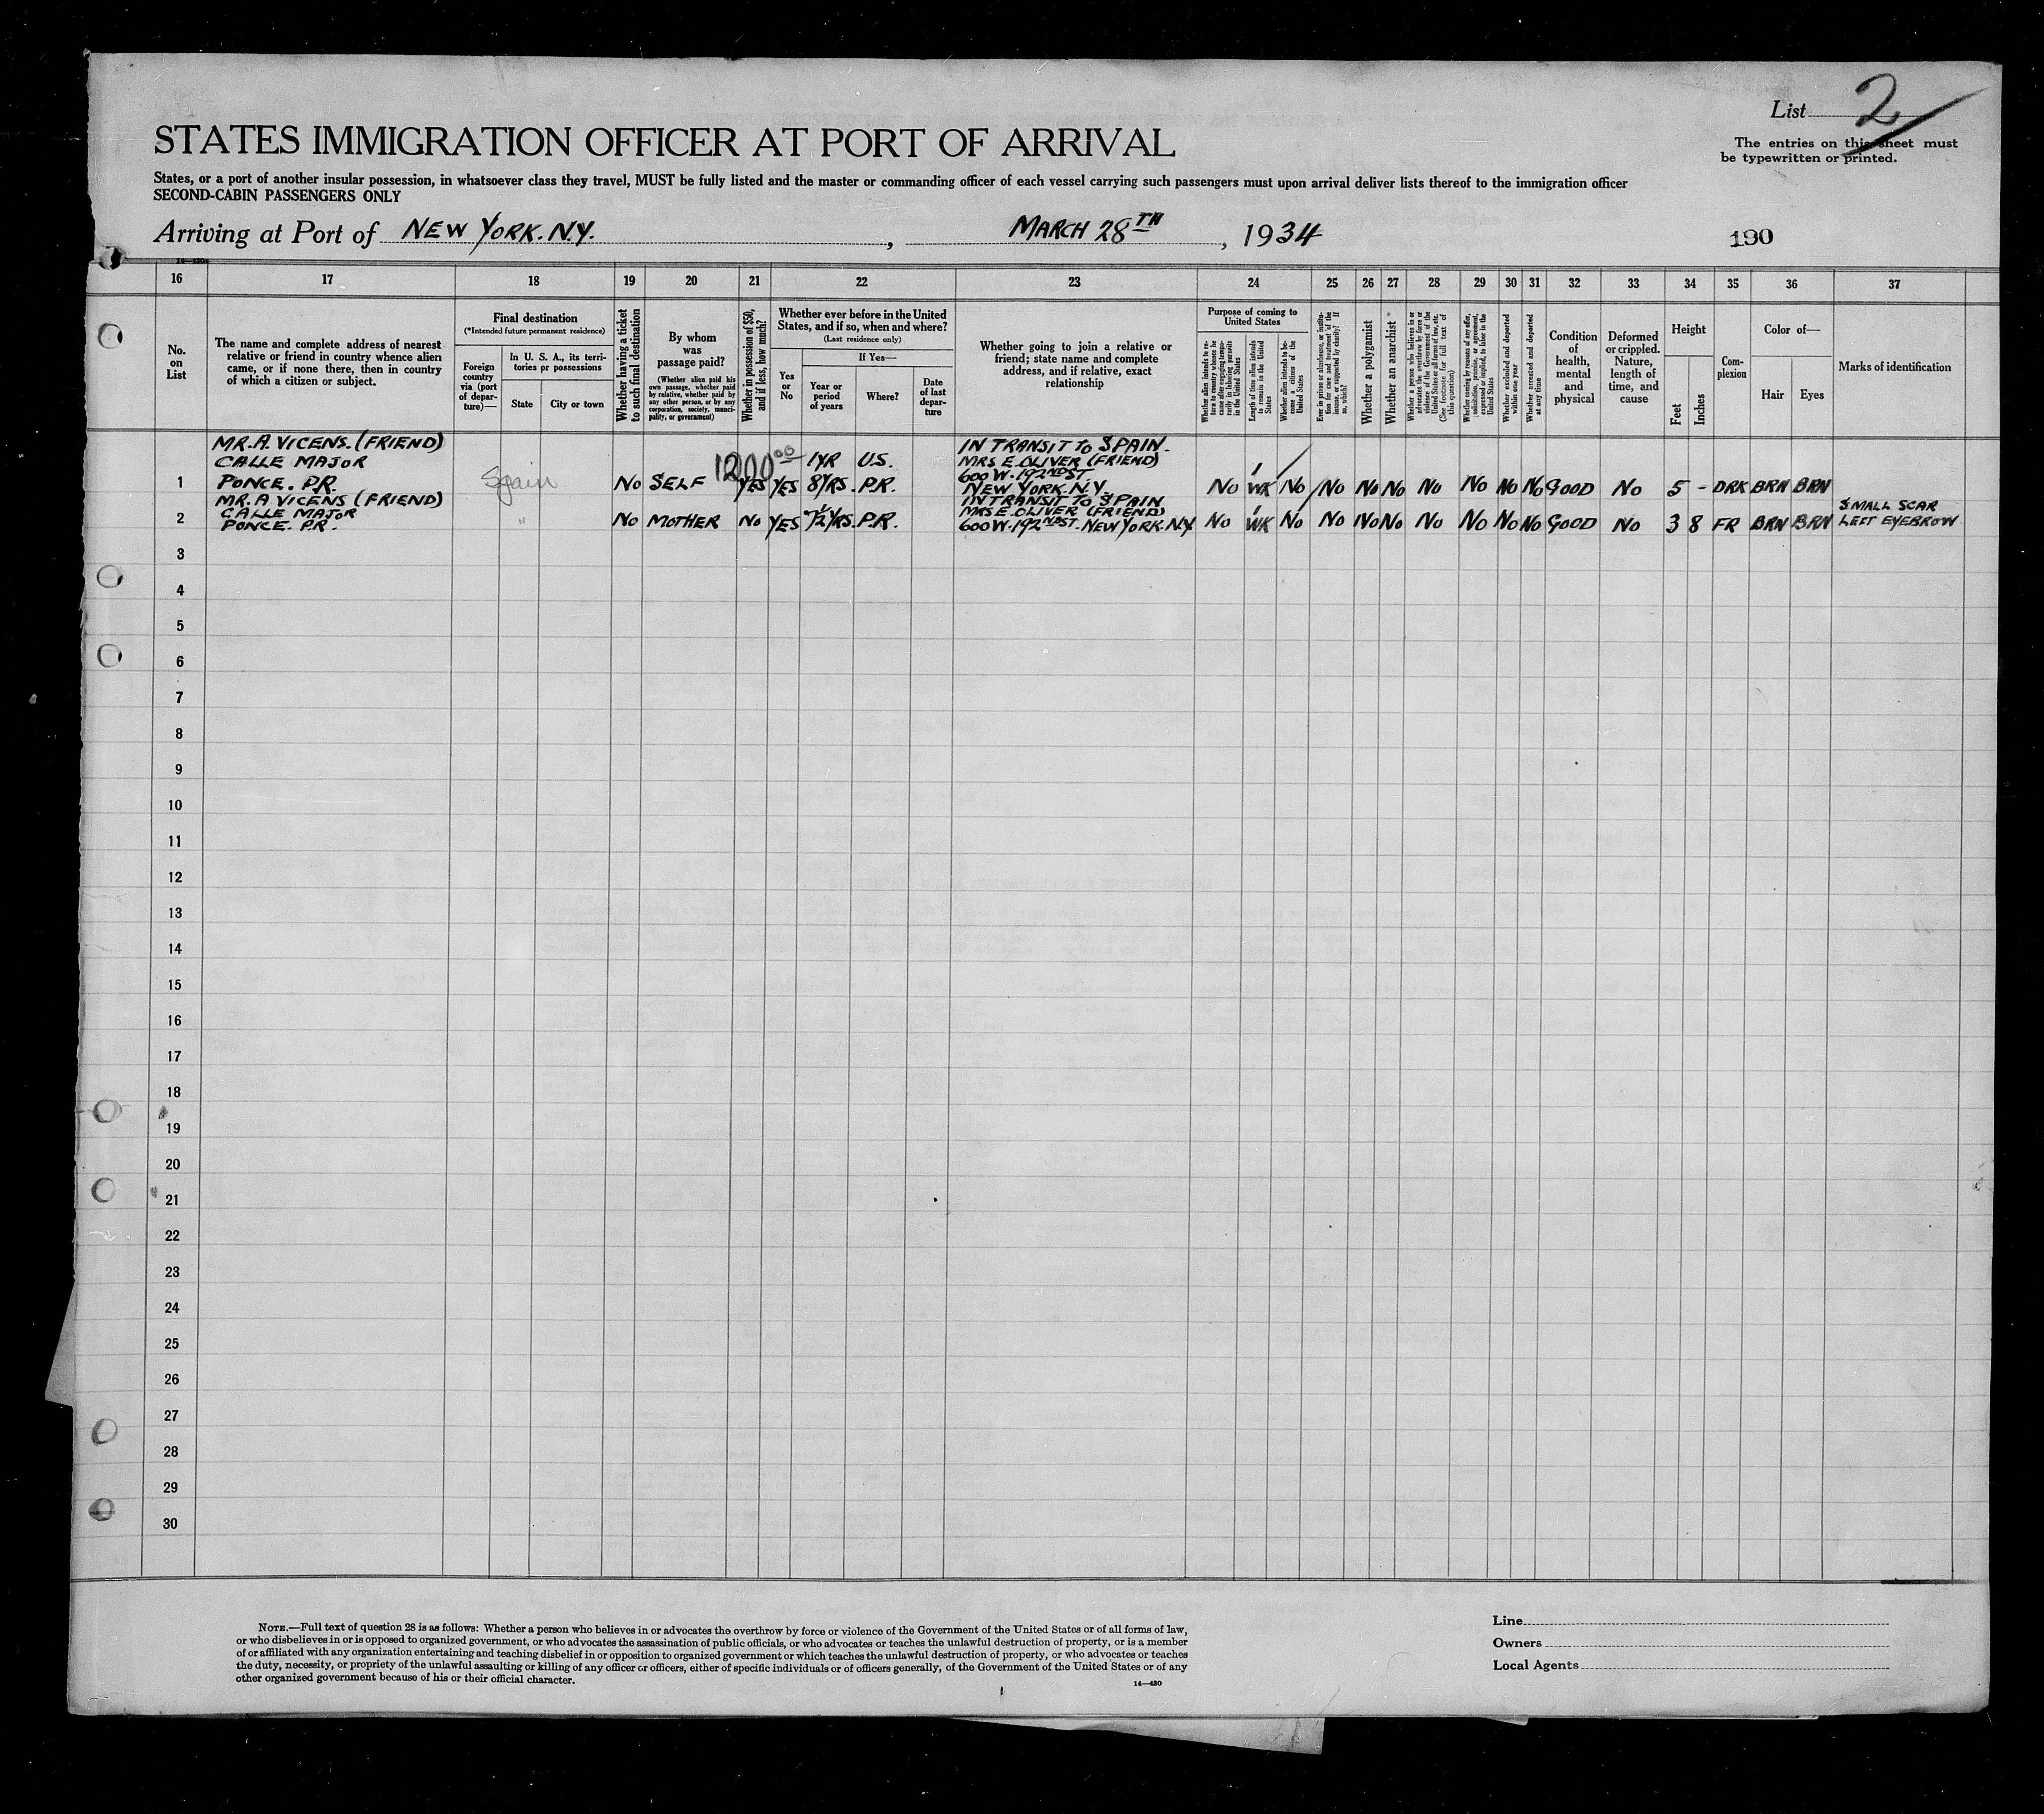 List 2
The entries on this sheet must
be typewritten or printed.
STATES IMMIGRATION OFFICER AT PORT OF ARRIVAL
States, or a port of another insular possession, in whatsoever class they travel, MUST be fully listed and the master or commanding officer of each vessel carrying such passengers must upon arrival deliver lists thereof to the immigration officer
SECOND-CABIN PASSENGERS ONLY
Arriving at Port of NEW YORK. N.Y. , MARCH 28TH , 1934
190
16 17 18 19 20 21 22 23 24 25 26 27 28 29 30 31 32 33 34 35 36 37
No.
on
List
The name and complete address of nearest
relative or friend in country whence alien
came, or if none there, then in country
of which a citizen or subject.
Final destination
(*Intended future permanent residence)
Foreign
country
via (port
of depar-
ture)—
In U. S. A., its terri-
tories or possessions
State
City or town
Whether having a ticket
to such final destination
By whom
was
passage paid?
(Whether alien paid his
own passage, whether paid
by relative, whether paid by
any other person, or by any
corporation, society, munici-
pality, or government)
Whether in possession of $50,
and if less, how much?
Whether ever before in the United
States, and if so, when and where?
(Last residence only)
Yes
or
No
If Yes—
Year or
period
of years
Where?
Date
of last
depar-
ture
Whether going to join a relative or
friend; state name and complete
address, and if relative, exact
relationship
Purpose of coming to
United States
Whether alien intends to re-
turn to country whence he
came after engaging tempo-
rarily in laboring pursuits
in the United States
Length of time alien intends
to remain in the United
States
Whether alien intends to be-
come a citizen of the
United States
Ever in prison or almshouse, or institu-
tion for care and treatment of the
insane, or supported by charity? If
so, which?
Whether a polygamist
Whether an anarchist
Whether a person who believes in or
advocates the overthrow by force or
violence of the Government of the
United States or all forms of law, etc.
(See footnote for full text of
this question)
Whether coming by reasons of any offer,
solicitation, promise, or agreement,
expressed or implied, to labor in the
United States
Whether excluded and deported
within one year
Whether arrested and deported
at any time
Condition
of
health,
mental
and
physical
Deformed
or crippled.
Nature,
length of
time, and
cause
Height
Feet
Inches
Com-
plexion
Color of—
Hair
Eyes
Marks of identification
MR. A. VICENS. (FRIEND)
CALLE MAJOR
1 PONCE. P.R. Spain No SELF 1200 00 YES YES 1YR U.S.
8YRS. P.R.
IN TRANSIT TO SPAIN.
MRS E. OLIVER (FRIEND)
600 W. 192ND ST
NEW YORK. N.Y.
No 1 WK No No No No No No No No GOOD No 5 - DRK BRN BRN
MR. A VICENS (FRIEND)
CALLE MAJOR
2 PONCE. P.R. " No MOTHER No YES 7½YRS. P.R.
IN TRANSIT TO SPAIN
MRS E. OLIVER (FRIEND)
600 W. 192ND ST. NEW YORK. N.Y.
No 1 WK No No No No No No No No GOOD No 3 8 FR BRN BRN
SMALL SCAR
LEFT EYEBROW
3
4
5
6
7
8
9
10
11
12
13
14
15
16
17
18
19
20
21
22
23
24
25
26
27
28
29
30
NOTE.—Full text of question 28 is as follows: Whether a person who believes in or advocates the overthrow by force or violence of the Government of the United States or of all forms of law,
or who disbelieves in or is opposed to organized government, or who advocates the assassination of public officials, or who advocates or teaches the unlawful destruction of property, or is a member
of or affiliated with any organization entertaining and teaching disbelief in or opposition to organized government or which teaches the unlawful destruction of property, or who advocates or teaches
the duty, necessity, or propriety of the unlawful assaulting or killing of any officer or officers, either of specific individuals or of officers generally, of the Government of the United States or of any
other organized government because of his or their official character.
14—430
Line
Owners
Local Agents